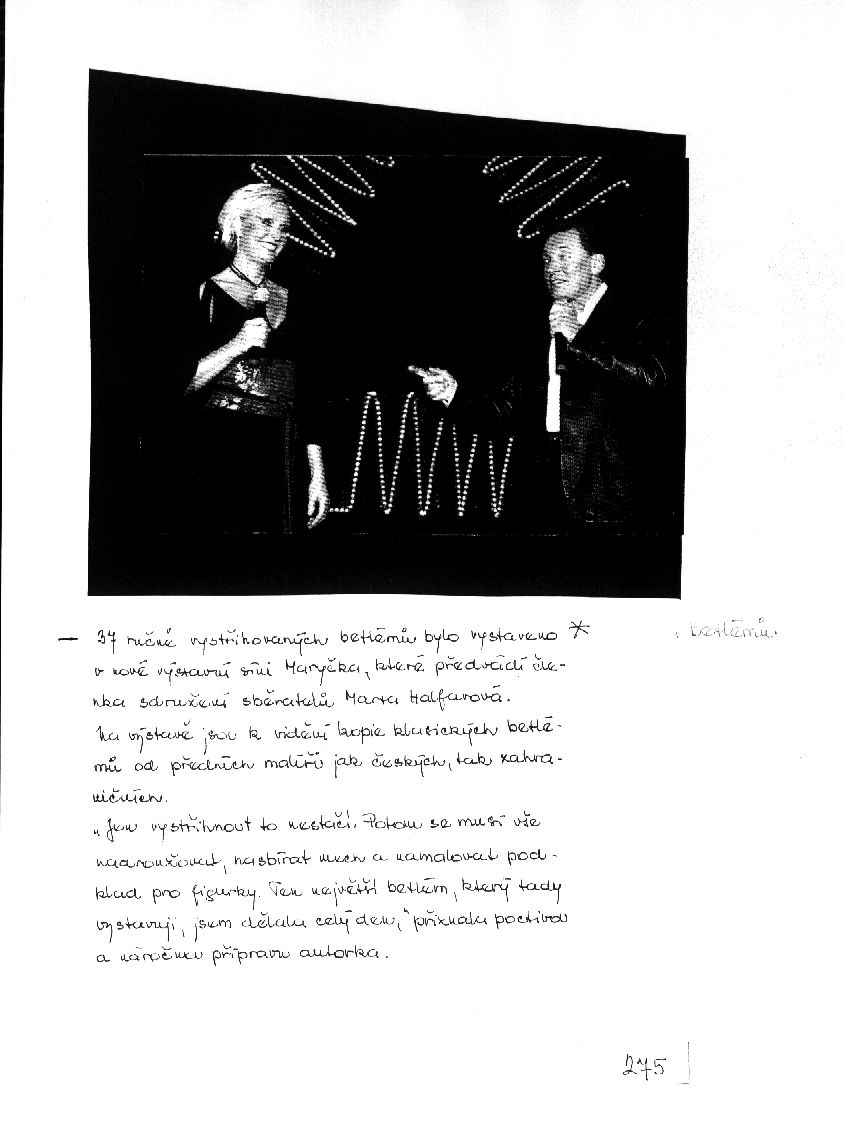 – 37 ručně vystřihovaných betlémů bylo vystaveno * betlémů
v nové výstavní síni Maryčka, které předvádí čle-
nka sdružení sběratelů Marta Halfarová.
Na výstavě jsou k vidění kopie klasických betlé-
mů od předních malířů jak českých, tak zahra-
ničních.
„Jen vystřihnout to nestačí. Potom se musí vše
naaranžovat, nasbírat mech a namalovat pod-
klad pro figurky. Ten největší betlém, který tady
vystavuji, jsem dělala celý den,“ přiznala poctivou
a náročnou přípravu autorka.
275